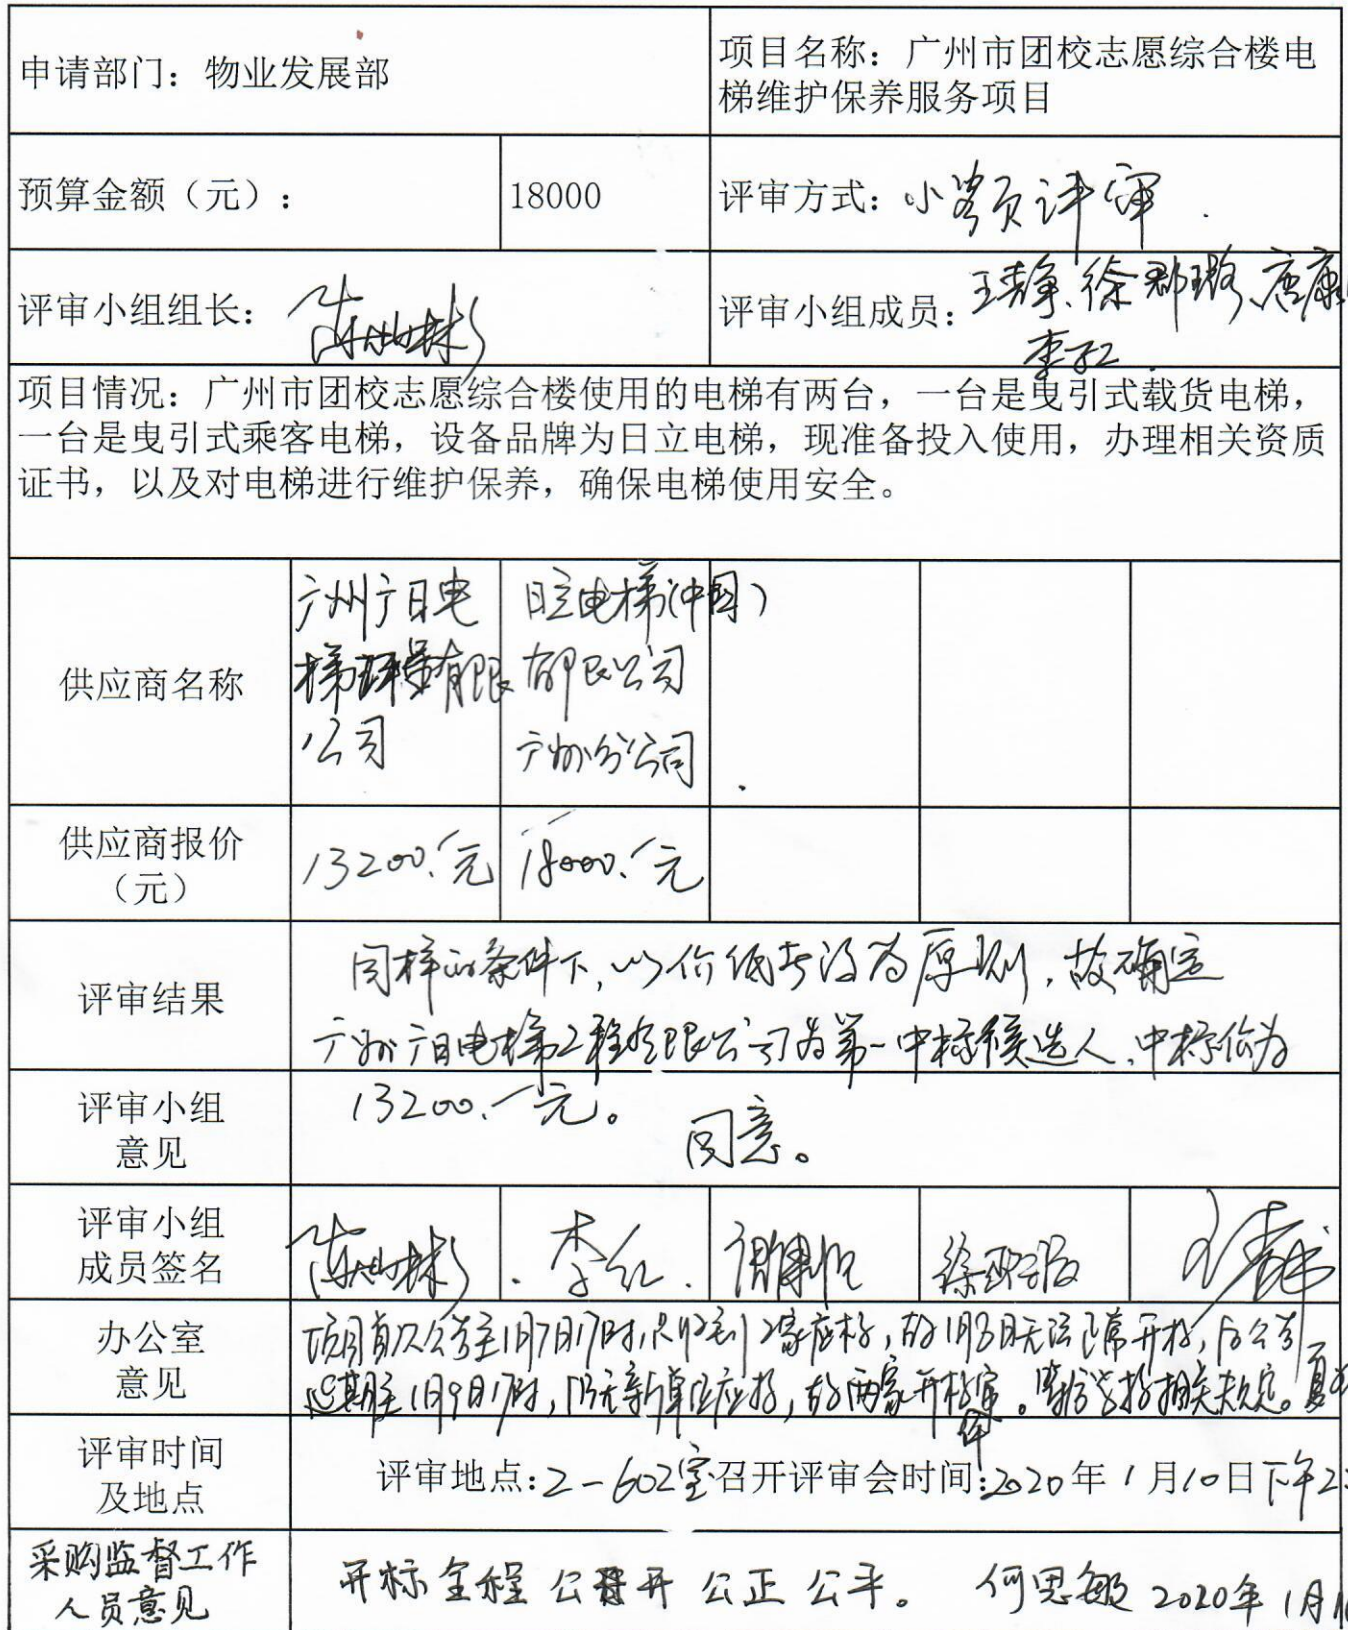 申请部门：物业发展部
项目名称：广州市团校志愿综合楼电
梯维护保养服务项目
预算金额（元）：
18000
评审方式：小额评审
评审小组组长：
评审小组成员：王静、徐
李红
项目情况：广州市团校志愿综合楼使用的电梯有两台，一台是曳引式载货电梯，
一台是曳引式乘客电梯，设备品牌为日立电梯，现准备投入使用，办理相关资质
证书，以及对电梯进行维护保养，确保电梯使用安全。
供应商名称
广州广日电
梯工程有限
公司
日立电梯（中国）
有限公司
广州分公司
供应商报价
（元）
13200.元
18000.元
评审结果
同样的条件下，以价低者得为原则，故确定
广州广日电梯工程有限公司为第一中标候选人，中标价为
13200.元。
评审小组
意见
同意。
评审小组
成员签名
李红
办公室
意见
项目首次公告至1月7日17时，只收到2家应标，故1月8日无法正常开标，后公告
延期至1月9日17时，仍无新单位应标，故两家开标。
评审时间
及地点
评审地点：2-602室召开评审会时间：2020年1月10日下午2
采购监督工作
人员意见
开标全程 公开 公正 公平。 何思敏 2020年1月